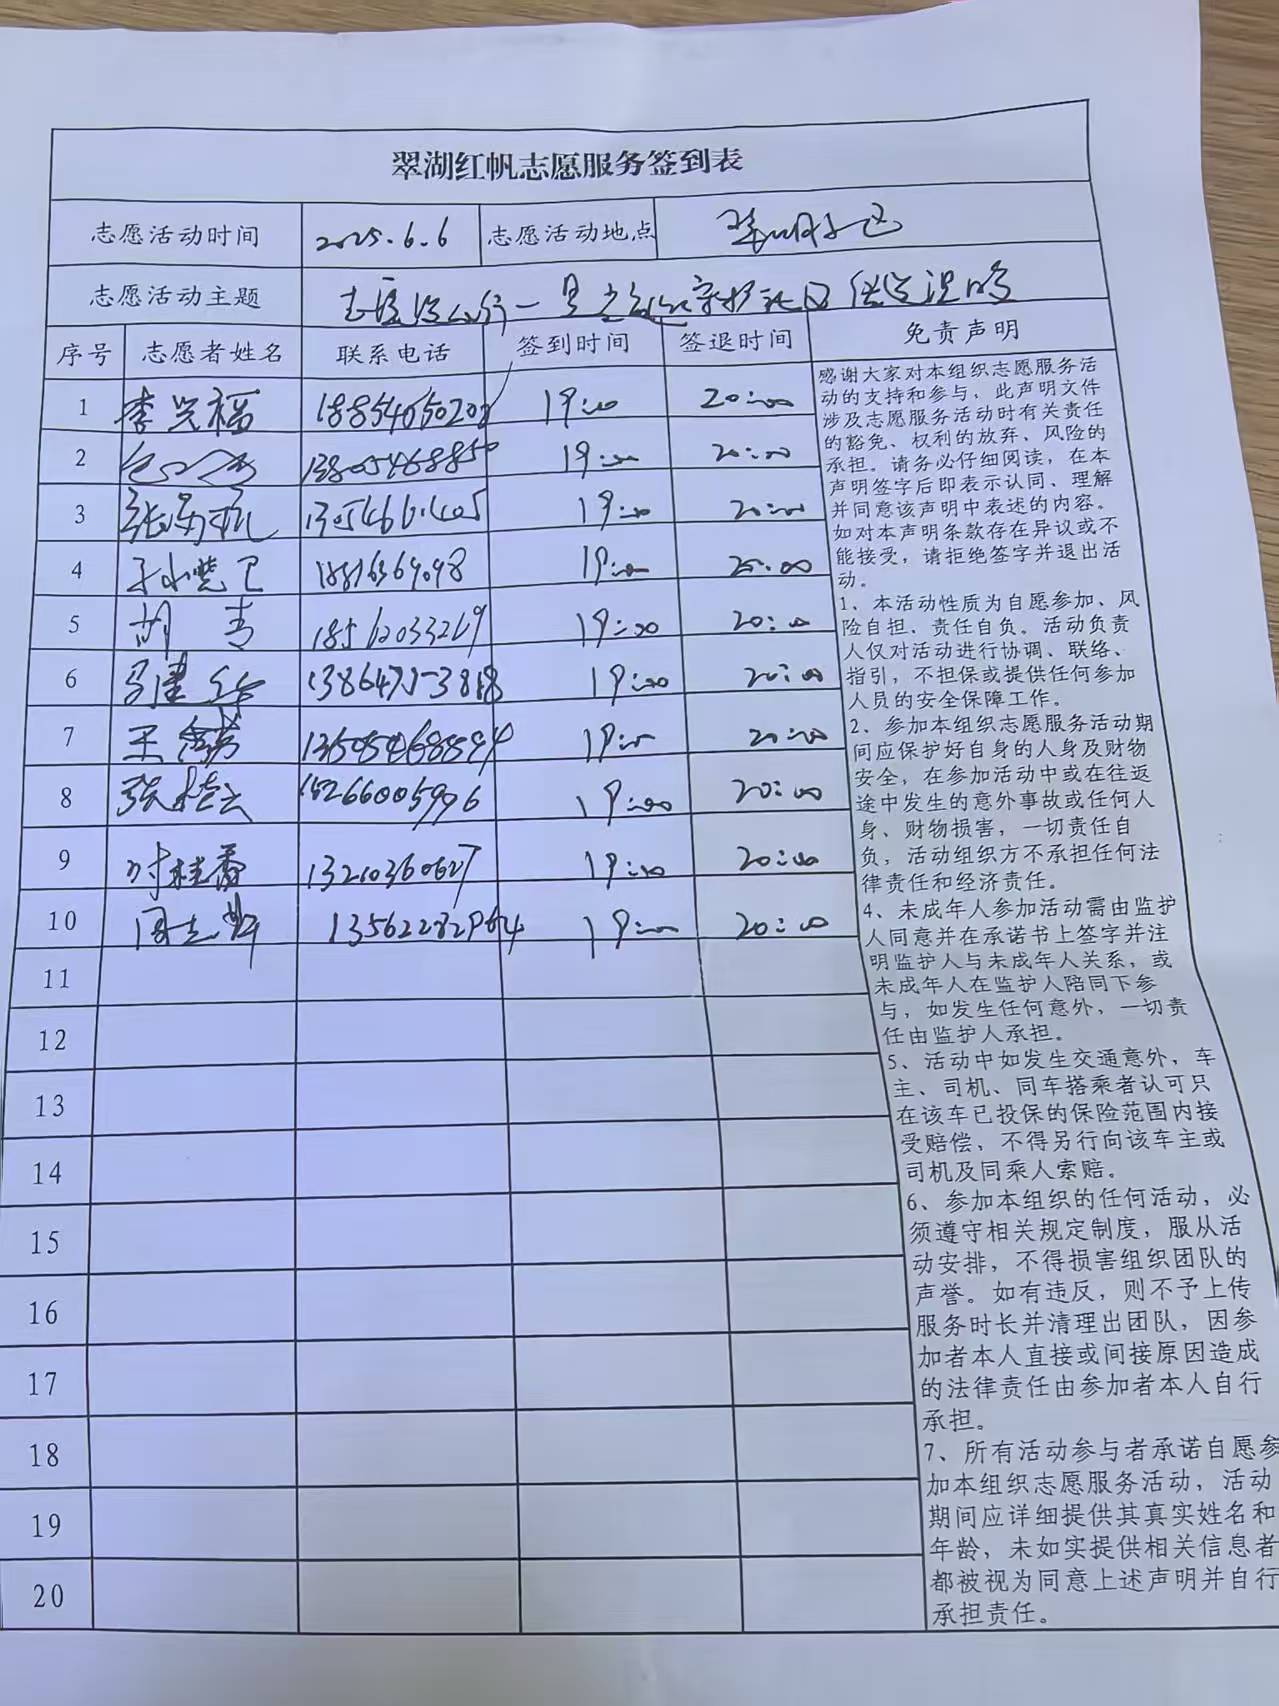 翠湖红帆志愿服务签到表
志愿活动时间 2025.6.6 志愿活动地点
志愿活动主题
序号 志愿者姓名 联系电话 签到时间 签退时间 免责声明
1 李兴福 19:00 20:00
2 13805468850 19:00 20:00
3 19:00 20:00
4 19:00 20:00
5 胡青 18562033269 19:00 20:00
6 19:00 20:00
7 王 19:00 20:00
8 张桂云 15266005976 19:00 20:00
9 付桂香 13210360627 19:00 20:00
10 周志 19:00 20:00
11
12
13
14
15
16
17
18
19
20
感谢大家对本组织志愿服务活
动的支持和参与，此声明文件
涉及志愿服务活动时有关责任
的豁免、权利的放弃、风险的
承担。请务必仔细阅读，在本
声明签字后即表示认同、理解
并同意该声明中表述的内容。
如对本声明条款存在异议或不
能接受，请拒绝签字并退出活
动。
1、本活动性质为自愿参加、风
险自担、责任自负。活动负责
人仅对活动进行协调、联络、
指引，不担保或提供任何参加
人员的安全保障工作。
2、参加本组织志愿服务活动期
间应保护好自身的人身及财物
安全，在参加活动中或在往返
途中发生的意外事故或任何人
身、财物损害，一切责任自
负，活动组织方不承担任何法
律责任和经济责任。
4、未成年人参加活动需由监护
人同意并在承诺书上签字并注
明监护人与未成年人关系，或
未成年人在监护人陪同下参
与，如发生任何意外，一切责
任由监护人承担。
5、活动中如发生交通意外，车
主、司机、同车搭乘者认可只
在该车已投保的保险范围内接
受赔偿，不得另行向该车主或
司机及同乘人索赔。
6、参加本组织的任何活动，必
须遵守相关规定制度，服从活
动安排，不得损害组织团队的
声誉。如有违反，则不予上传
服务时长并清理出团队，因参
加者本人直接或间接原因造成
的法律责任由参加者本人自行
承担。
7、所有活动参与者承诺自愿参
加本组织志愿服务活动，活动
期间应详细提供其真实姓名和
年龄，未如实提供相关信息者
都被视为同意上述声明并自行
承担责任。